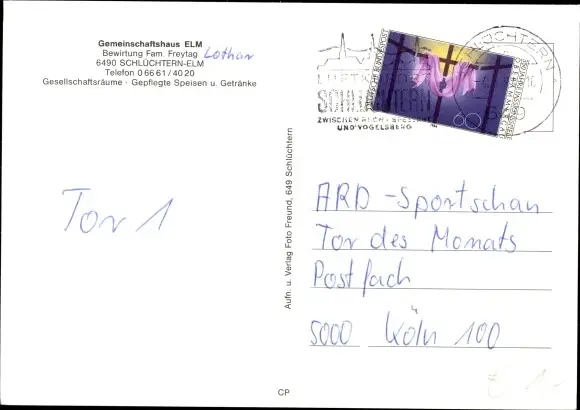 Gemeinschaftshaus ELM
Bewirtung Fam. Freytag Lothar
6490 SCHLÜCHTERN-ELM
Telefon 0 66 61 / 40 20
Gesellschaftsräume · Gepflegte Speisen u. Getränke
SCHLÜCHTERN
ZWISCHEN
UND VOGELSBERG
60
Tor 1
Aufn. u. Verlag Foto Freund, 649 Schlüchtern
ARD - Sportschau
Tor des Monats
Postfach
5000 Köln 100
CP